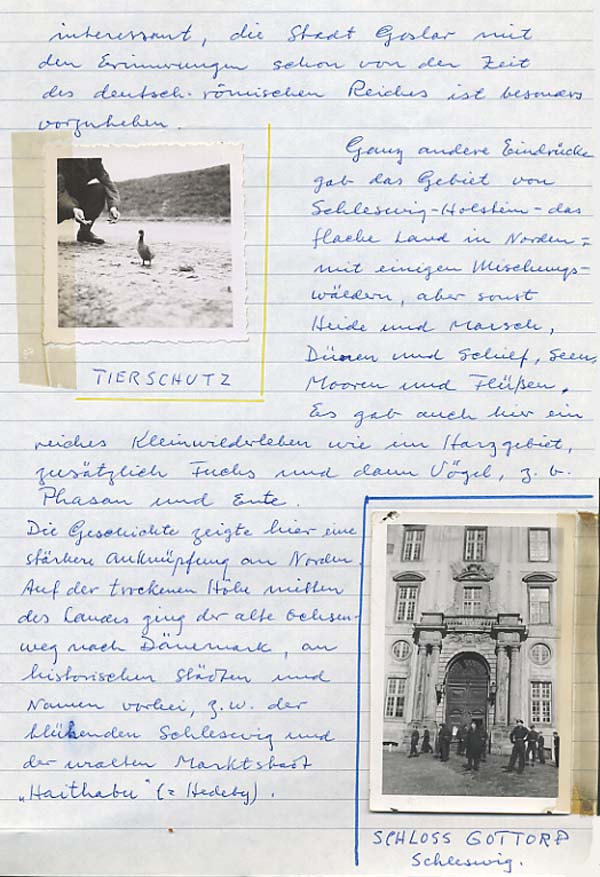 interessant, die Stadt Goslar mit
den Erinnerungen schon von der Zeit
des deutsch-römischen Reiches ist besonders
vorzuheben.
Ganz andere Eindrücke
gab das Gebiet von
Schleswig-Holstein - das
flache Land in Norden -
mit einigen Mischungs-
wäldern, aber sonst
Heide und Marsch,
Dünen und Schilf, Seen,
Mooren und Flüßen.
Es gab auch hier ein
reiches Kleinwilderleben wie im Harzgebiet,
zusätzlich Fuchs und dann Vögel, z.b.
Phasan und Ente.
TIERSCHUTZ
Die Geschichte zeigte hier eine
stärkere Anknüpfung an Norden.
Auf der trockenen Höhe mitten
des Landes ging der alte Ochsen-
weg nach Dänemark, an
historischen Städten und
Namen vorbei, z.w. der
blühenden Schleswig und
der uralten Marktstadt
„Haithabu" (= Hedeby).
SCHLOSS GOTTORP
Schleswig.